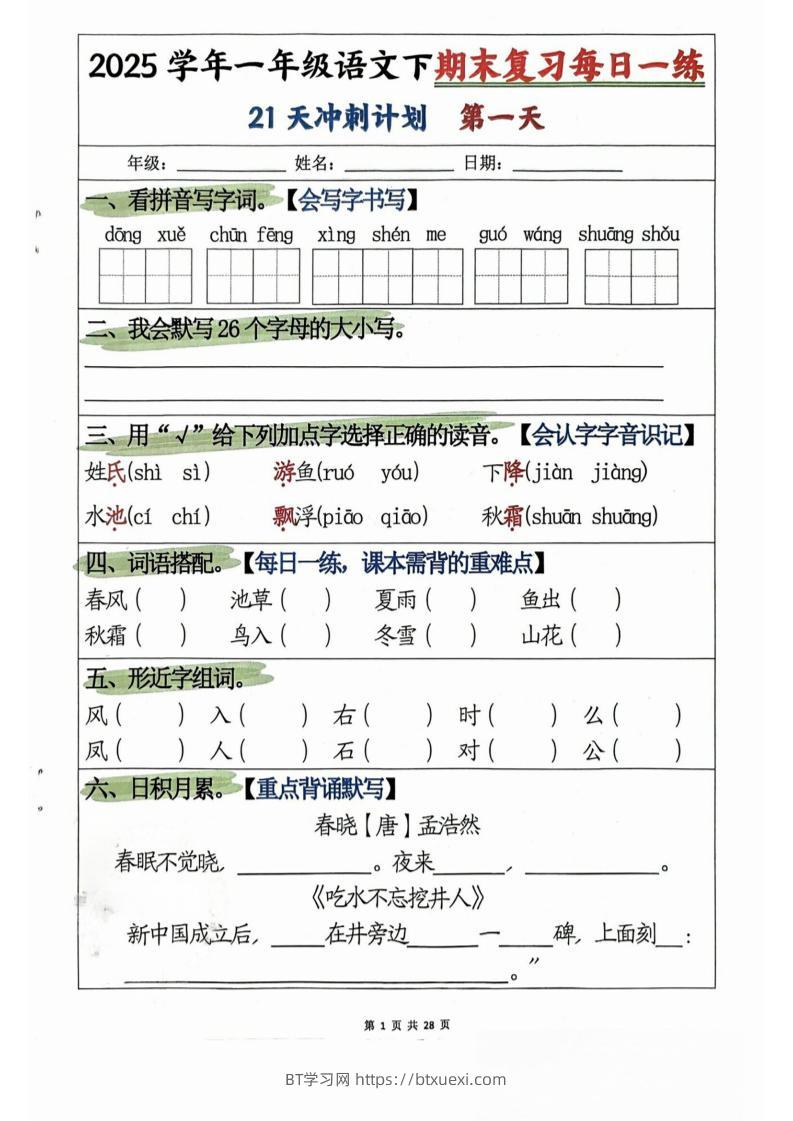 2025 学年一年级语文下期末复习每日一练
21 天冲刺计划 第一天
年级：__________ 姓名：__________ 日期：__________
一、看拼音写字词。【会写字书写】
dōng xuě chūn fēng xìng shén me guó wáng shuāng shǒu
二、我会默写 26 个字母的大小写。
三、用“√”给下列加点字选择正确的读音。【会认字字音识记】
姓氏(shì sì) 游鱼(ruó yóu) 下降(jiàn jiàng)
水池(cí chí) 飘浮(piāo qiāo) 秋霜(shuān shuāng)
四、词语搭配。【每日一练，课本需背的重难点】
春风（ ） 池草（ ） 夏雨（ ） 鱼出（ ）
秋霜（ ） 鸟入（ ） 冬雪（ ） 山花（ ）
五、形近字组词。
风（ ） 入（ ） 右（ ） 时（ ） 么（ ）
凤（ ） 人（ ） 石（ ） 对（ ） 公（ ）
六、日积月累。【重点背诵默写】
春晓【唐】孟浩然
春眠不觉晓，____________。夜来______，____________。
《吃水不忘挖井人》
新中国成立后，_____在井旁边______一_____碑，上面刻__：
__________________________________。”
第 1 页 共 28 页
BT学习网 https://btxuexi.com